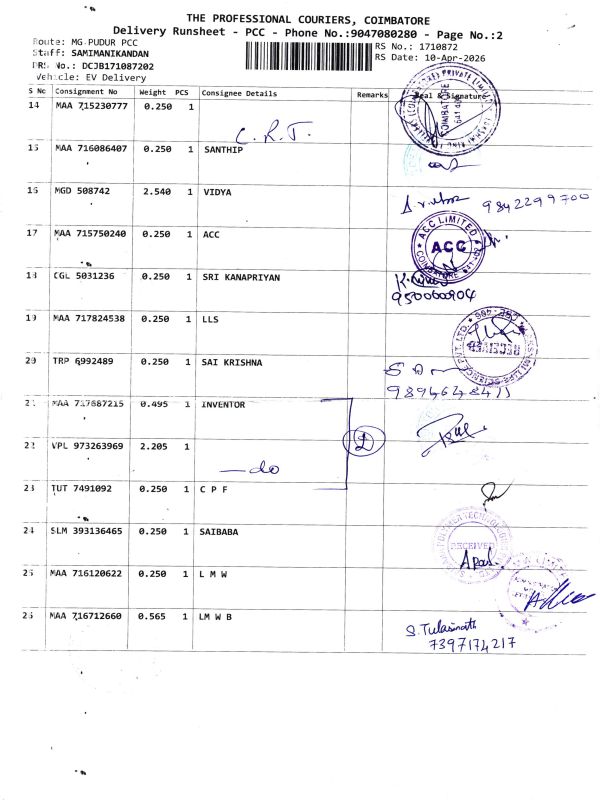 THE PROFESSIONAL COURIERS, COIMBATORE
Delivery Runsheet - PCC - Phone No.:9047080280 - Page No.:2
Route: MG PUDUR PCC
Staff: SAMIMANIKANDAN
DRS No.: DCJB171087202
Vehicle: EV Delivery
RS No.: 1710872
RS Date: 10-Apr-2026
S No Consignment No Weight PCS Consignee Details Remarks Seal & Signature
14 MAA 715230777 0.250 1 C.R.T.
15 MAA 716086407 0.250 1 SANTHIP
16 MGD 508742 2.540 1 VIDYA 9842299700
17 MAA 715750240 0.250 1 ACC
ACC LIMITED
ACC
COIMBATORE
18 CGL 5031236 0.250 1 SRI KANAPRIYAN
9500600904
19 MAA 717824538 0.250 1 LLS
RECEIVED
20 TRP 6992489 0.250 1 SAI KRISHNA
21 MAA 717687215 0.495 1 INVENTOR
22 VPL 973263969 2.205 1 —do
2
23 TUT 7491092 0.250 1 C P F
24 SLM 393136465 0.250 1 SAIBABA
RECEIVED
25 MAA 716120622 0.250 1 L M W
26 MAA 716712660 0.565 1 LM W B
S. Tulasinath
7397174217